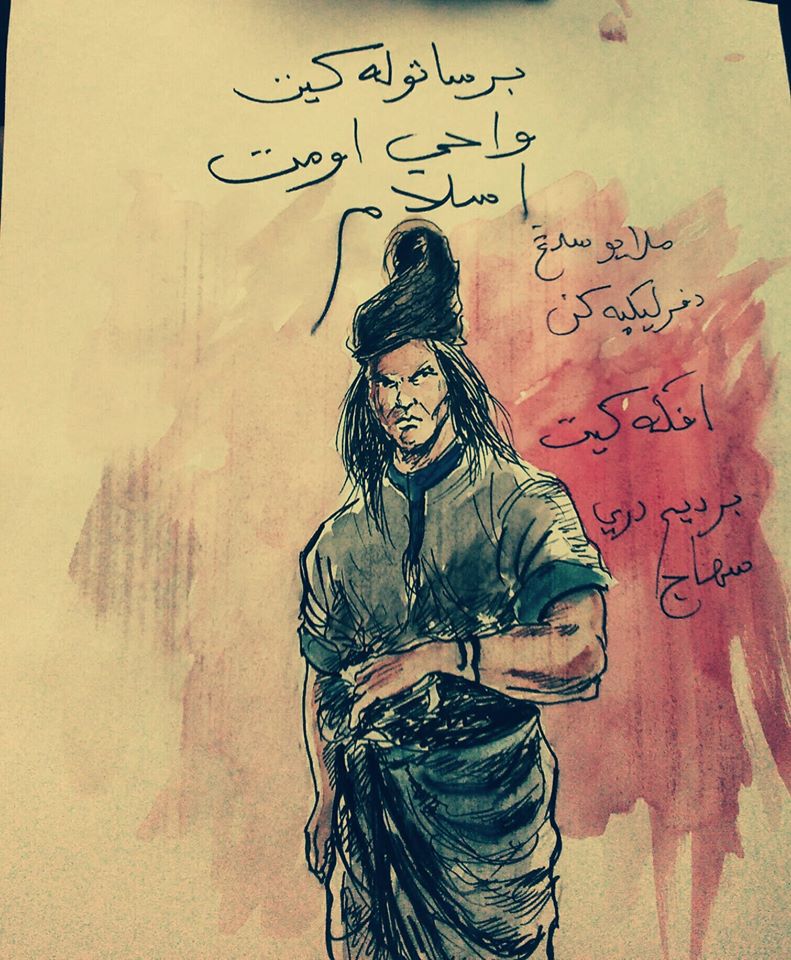 برساتوله كيت
واحي اومت
اسلام
ملايو سدڠ
دفرليكيه كن
افكه كيت
برديم دري
سهاج